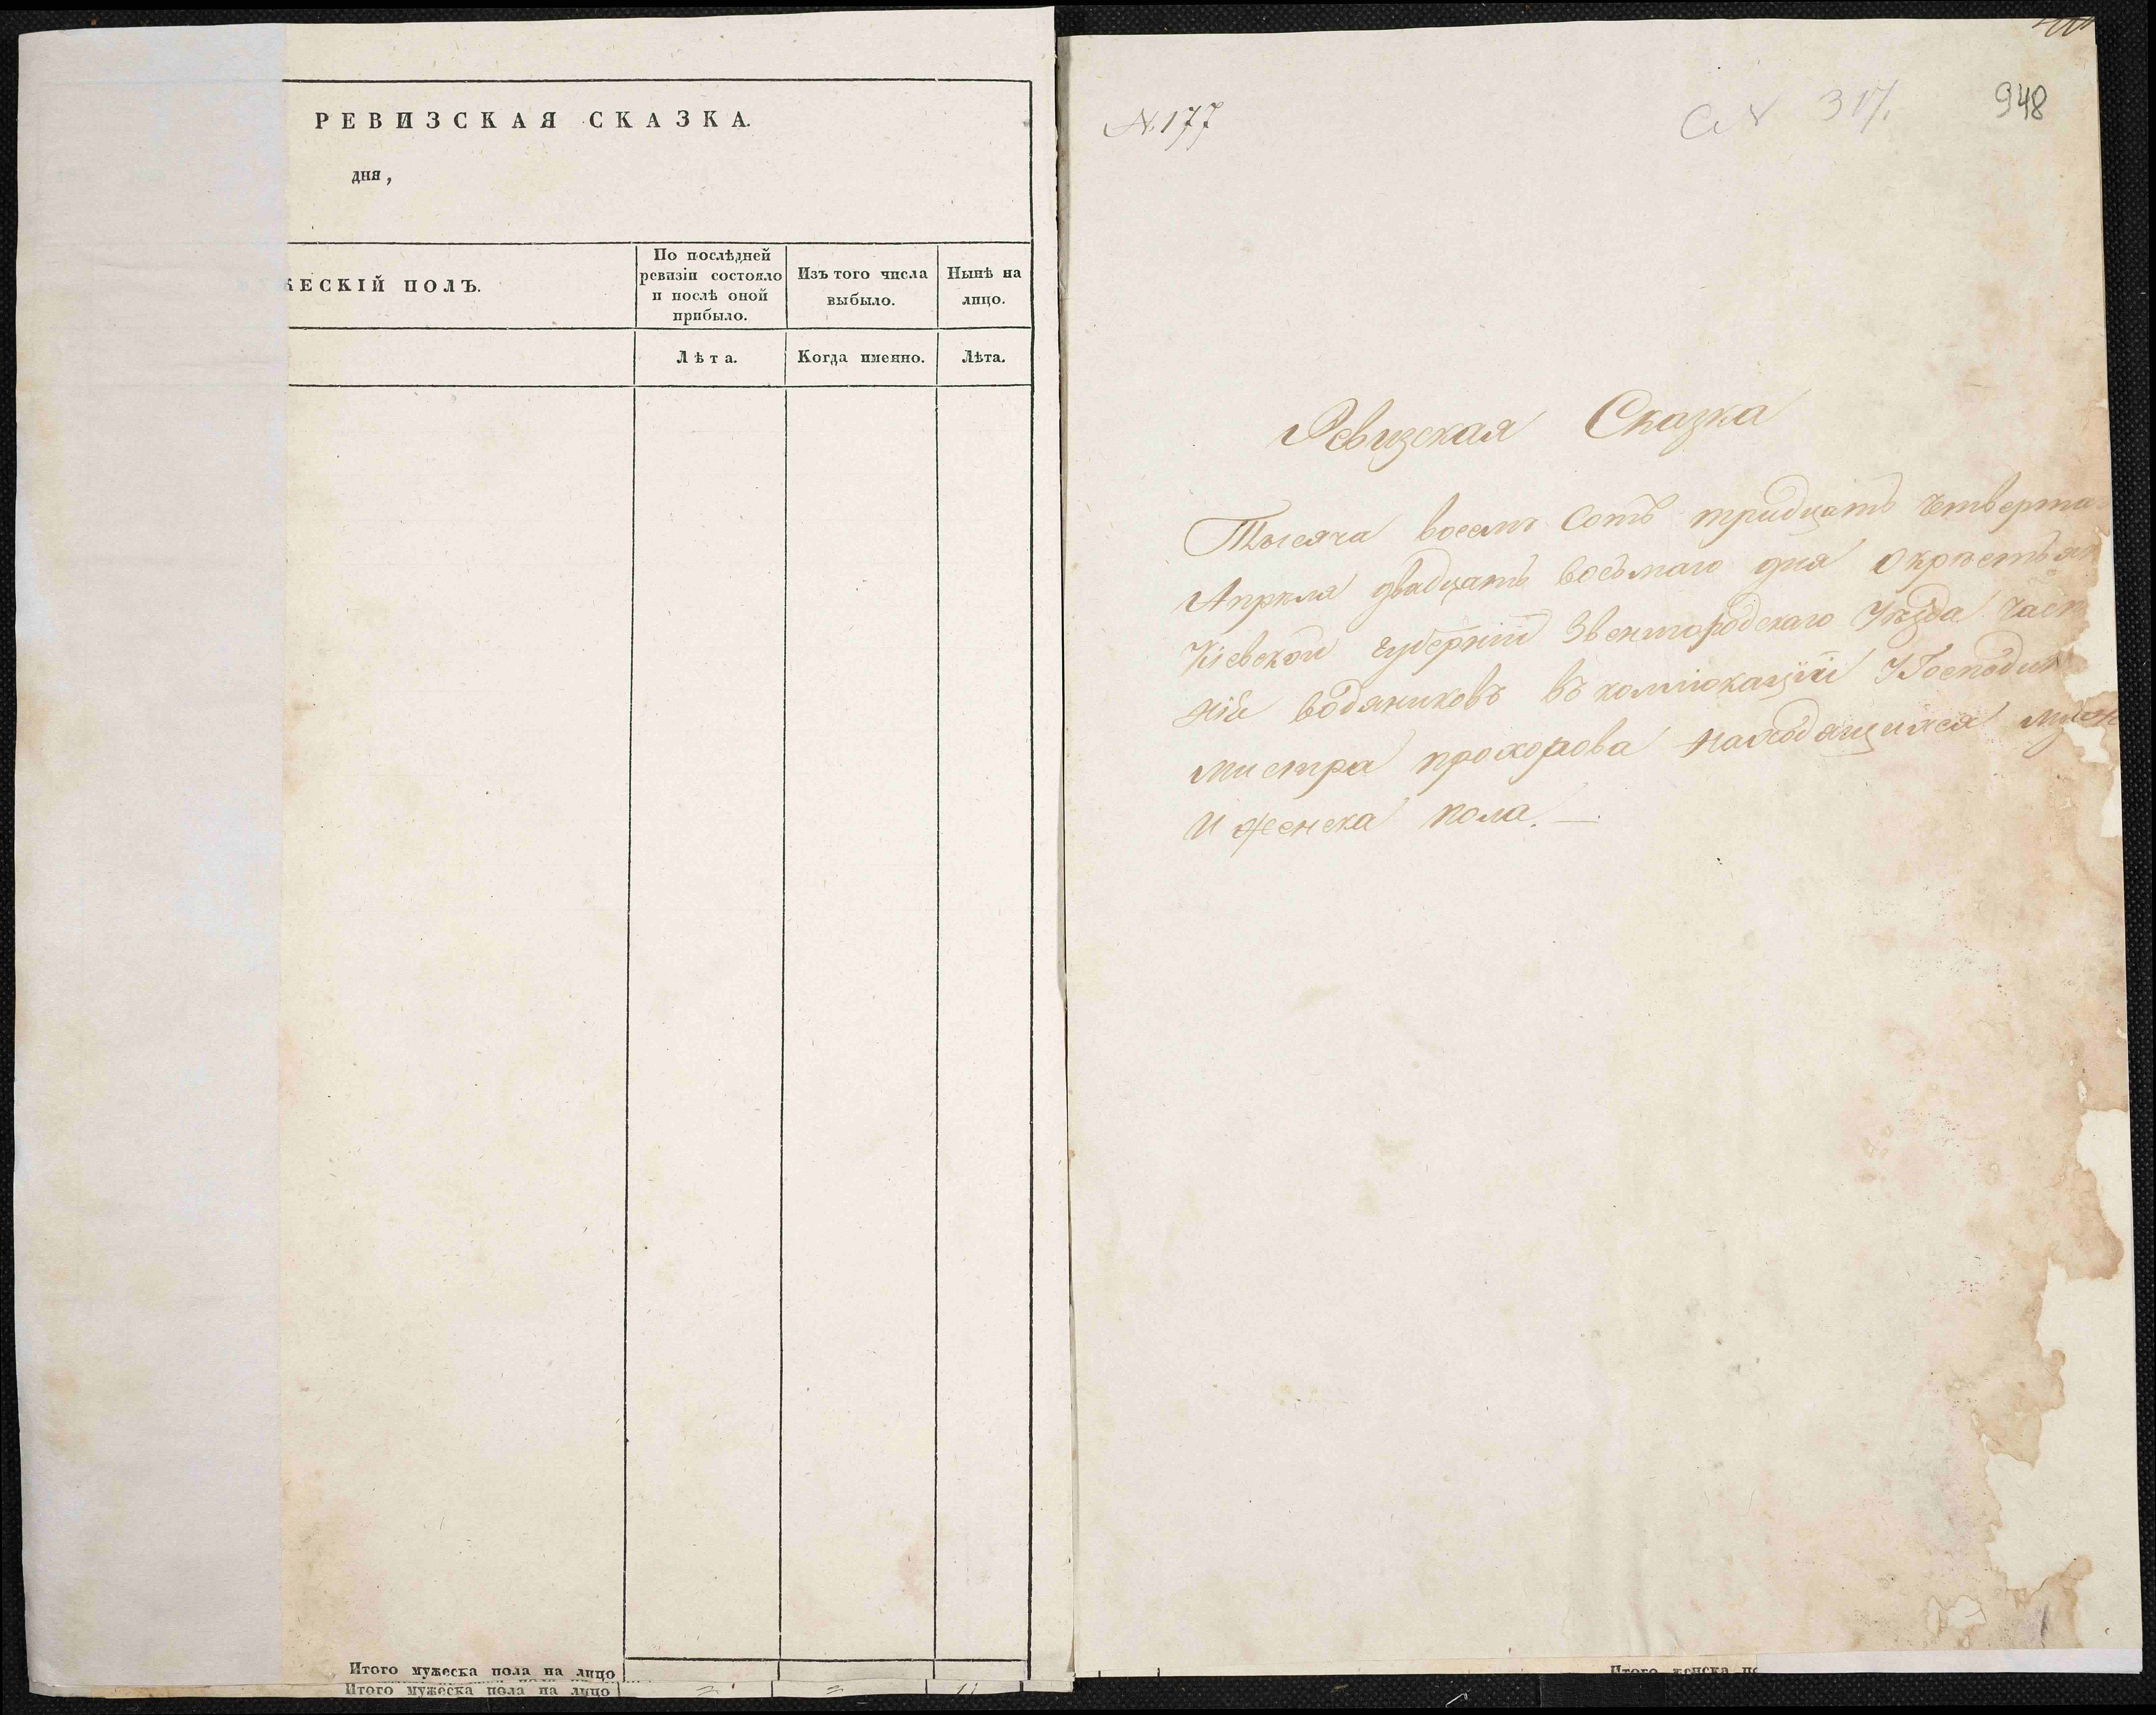 РЕВИЗСКАЯ СКАЗКА.
дня,
ЖЕСКІЙ ПОЛЪ.
По послѣдней
ревизіи состояло
и послѣ оной
прибыло.
Изъ того числа
выбыло.
Нынѣ на
лицо.
Лѣта.
Когда именно.
Лѣта.
Итого мужеска пола на лицо
Итого мужеска пола на лицо
№177
948
Ревизская Сказка
Тысяча восемъ Сотъ тридцать четверта
Апреля двадцать восьмаго дня Окрестьян
Кіевской губерніи Звенигородскаго Уѣзда част
ніе водяниковъ въ Господин
мистра прохорова находящимся муж
И женска пола. —
Итого женска по